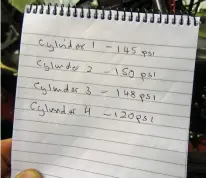 Cylinder 1 - 145 psi
Cylinder 2 - 150 psi
Cylinder 3 - 148 psi
Cylinder 4 - 120 psi